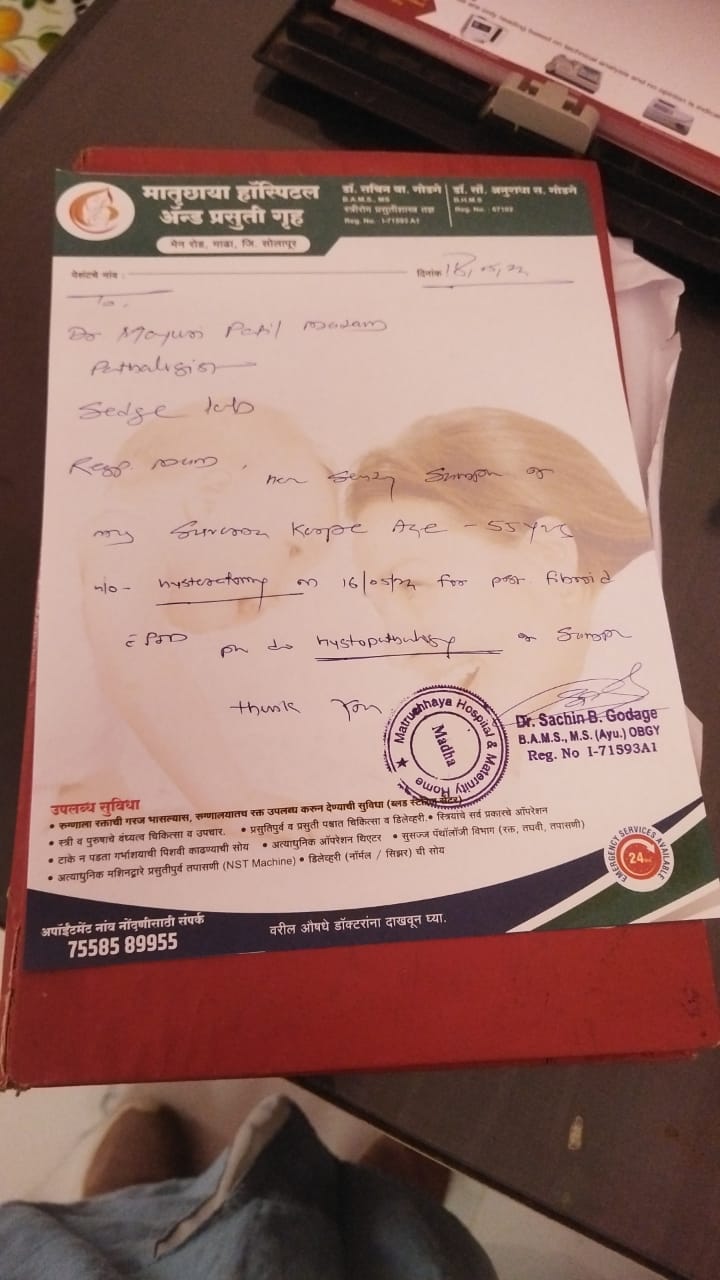 are only reading based on technical analysis and no opinion is indica
मातृछाया हॉस्पिटल
ॲन्ड प्रसुती गृह
मेन रोड, माढा, जि. सोलापूर
डॉ. सचिन बा. गोडगे
B.A.M.S., MS
स्त्रीरोग प्रसुतीशास्त्र तज्ञ
Reg. No. : I-71593 A1
डॉ. सौ. अनुराधा स. गोडगे
B.H.M.S
Reg. No. : 67102
पेशंटचे नांव :
दिनांक
To,
Dr Mayuri Patil madam
Pathalogist
lab
Resp. mam,
Age - 55 yrs
h/o - hysterectomy on 16/05/22 for fibroid
hystopathology
thank you
Matruchhaya Hospital & Maternity Home
Madha
Dr. Sachin B. Godage
B.A.M.S., M.S. (Ayu.) OBGY
Reg. No I-71593A1
उपलब्ध सुविधा
• रुग्णाला रक्ताची गरज भासल्यास, रुग्णालयातच रक्त उपलब्ध करुन देण्याची सुविधा (ब्लड स्टोरेज सेंटर)
• स्त्री व पुरुषाचे वंध्यत्व चिकित्सा व उपचार. • प्रसुतिपुर्व व प्रसुती पश्चात चिकित्सा व डिलेव्हरी. • स्त्रियांचे सर्व प्रकारचे ऑपरेशन
• टाके न पडता गर्भाशयाची पिशवी काढण्याची सोय • अत्याधुनिक ऑपरेशन थिएटर • सुसज्ज पॅथॉलॉजी विभाग (रक्त, लघवी, तपासणी)
• अत्याधुनिक मशिनद्वारे प्रसुतीपुर्व तपासणी (NST Machine) • डिलेव्हरी (नॉर्मल / सिझर) ची सोय
EMERGENCY SERVICES AVAILABLE
24
अपॉईंटमेंट नांव नोंदणीसाठी संपर्क
75585 89955
वरील औषधे डॉक्टरांना दाखवून घ्या.